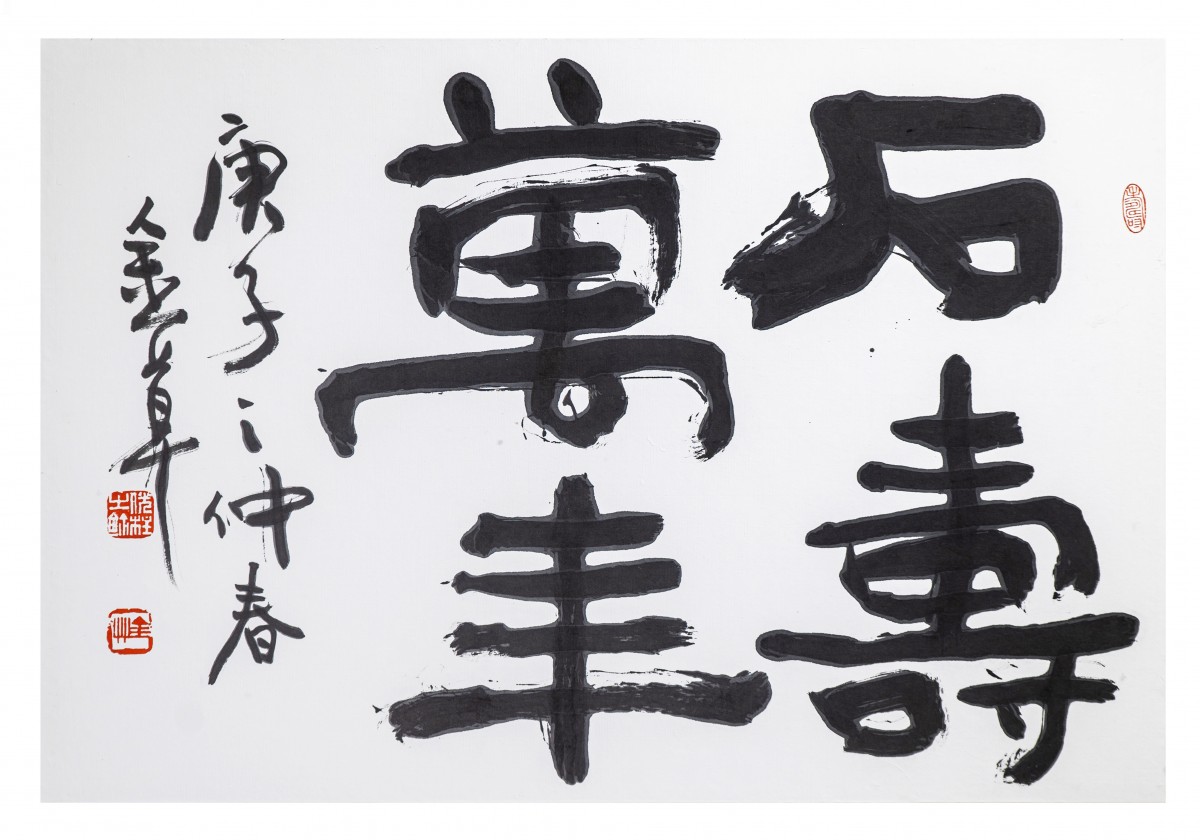 石壽
萬年
庚子之仲春
金草